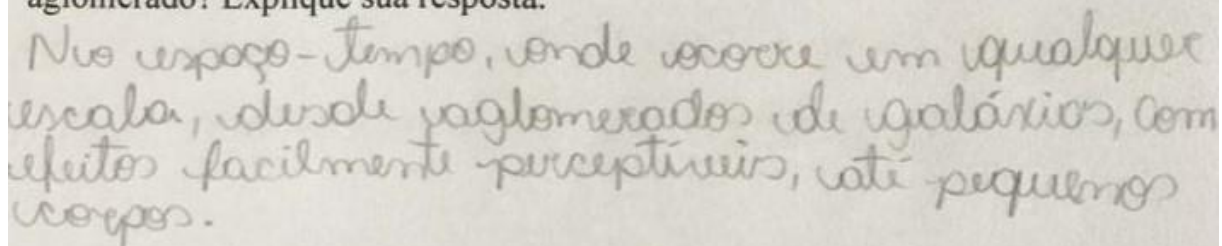 aglomerado? Explique sua resposta.
No espaço-tempo, onde ocorre em qualquer
escala, desde aglomerados de galáxias, com
efeitos facilmente perceptíveis, até pequenos
corpos.